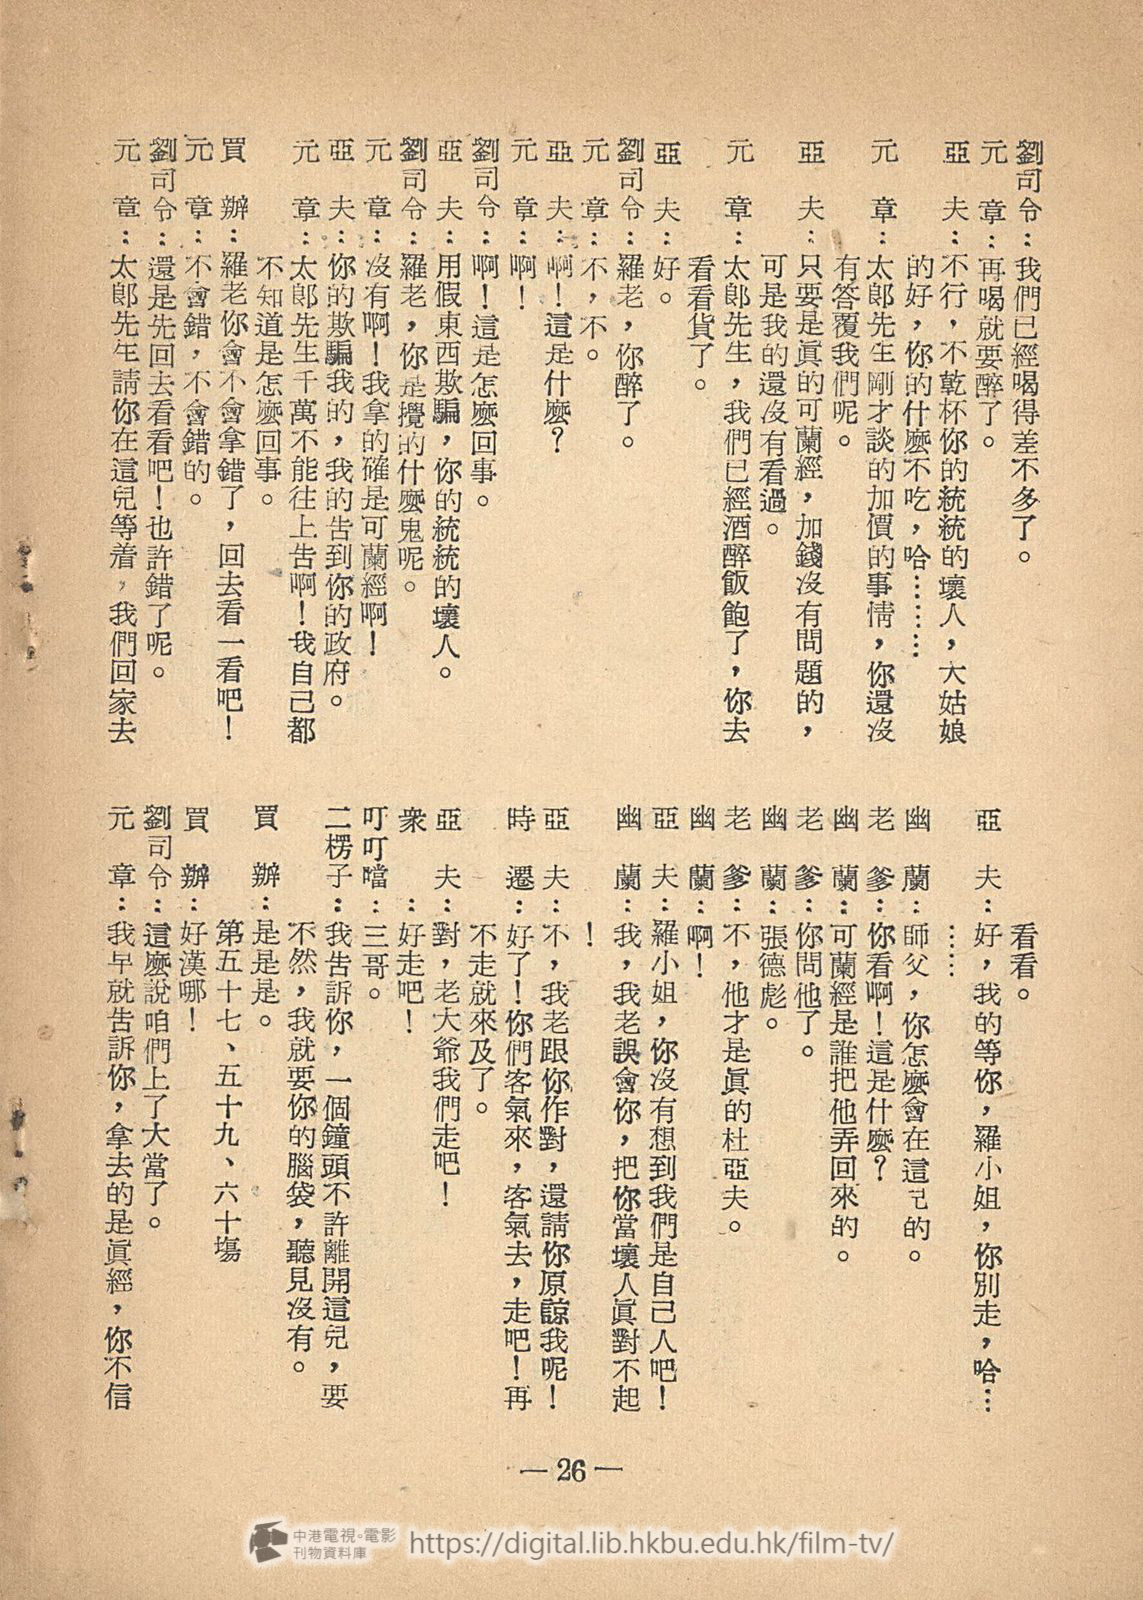 劉司令：我們已經喝得差不多了。
元　章：再喝就要醉了。
亞　夫：不行，不乾杯你的統統的壞人，大姑娘
的好，你的什麼不吃，哈………
元　章：太郎先生剛才談的加價的事情，你還沒
有答覆我們呢。
亞　夫：只要是眞的可蘭經，加錢沒有問題的，
可是我的還沒有看過。
元　章：太郎先生，我們已經酒醉飯飽了，你去
看看貨了。
亞　夫：好。
劉司令：羅老，你醉了。
元　章：不，不。
亞　夫：啊！這是什麼？
元　章：啊！
劉司令：啊！這是怎麼回事。
亞　夫：用假東西欺騙，你的統統的壞人。
劉司令：羅老，你是攪的什麼鬼呢。
元　章：沒有啊！我拿的確是可蘭經啊！
亞　夫：你的欺騙我的，我的告到你的政府。
元　章：太郎先生千萬不能往上告啊！我自己都
不知道是怎麼回事。
買　辦：羅老你會不會拿錯了，回去看一看吧！
元　章：不會錯，不會錯的。
劉司令：還是先回去看看吧！也許錯了呢。
元　章：太郎先生請你在這兒等着，我們回家去
看看。
亞　夫：好，我的等你，羅小姐，你別走，哈…
……
幽　蘭：師父，你怎麼會在這兒的。
老　爹：你看啊！這是什麼？
幽　蘭：可蘭經是誰把他弄回來的。
老　爹：你問他了。
幽　蘭：張德彪。
老　爹：不，他才是眞的杜亞夫。
幽　蘭：啊！
亞　夫：羅小姐，你沒有想到我們是自己人吧！
幽　蘭：我，我老誤會你，把你當壞人眞對不起
！
亞　夫：不，我老跟你作對，還請你原諒我呢！
時　遷：好了！你們客氣來，客氣去，走吧！再
不走就來及了。
亞　夫：對，老大爺我們走吧！
衆　　：好走吧！
叮叮噹：三哥。
二楞子：我告訴你，一個鐘頭不許離開這兒，要
不然，我就要你的腦袋，聽見沒有。
買　辦：是是是。
第五十七、五十九、六十塲
買　辦：好漢哪！
劉司令：這麼說咱們上了大當了。
元　章：我早就告訴你，拿去的是眞經，你不信
—26—
中港電視·電影
刊物資料庫
https://digital.lib.hkbu.edu.hk/film-tv/